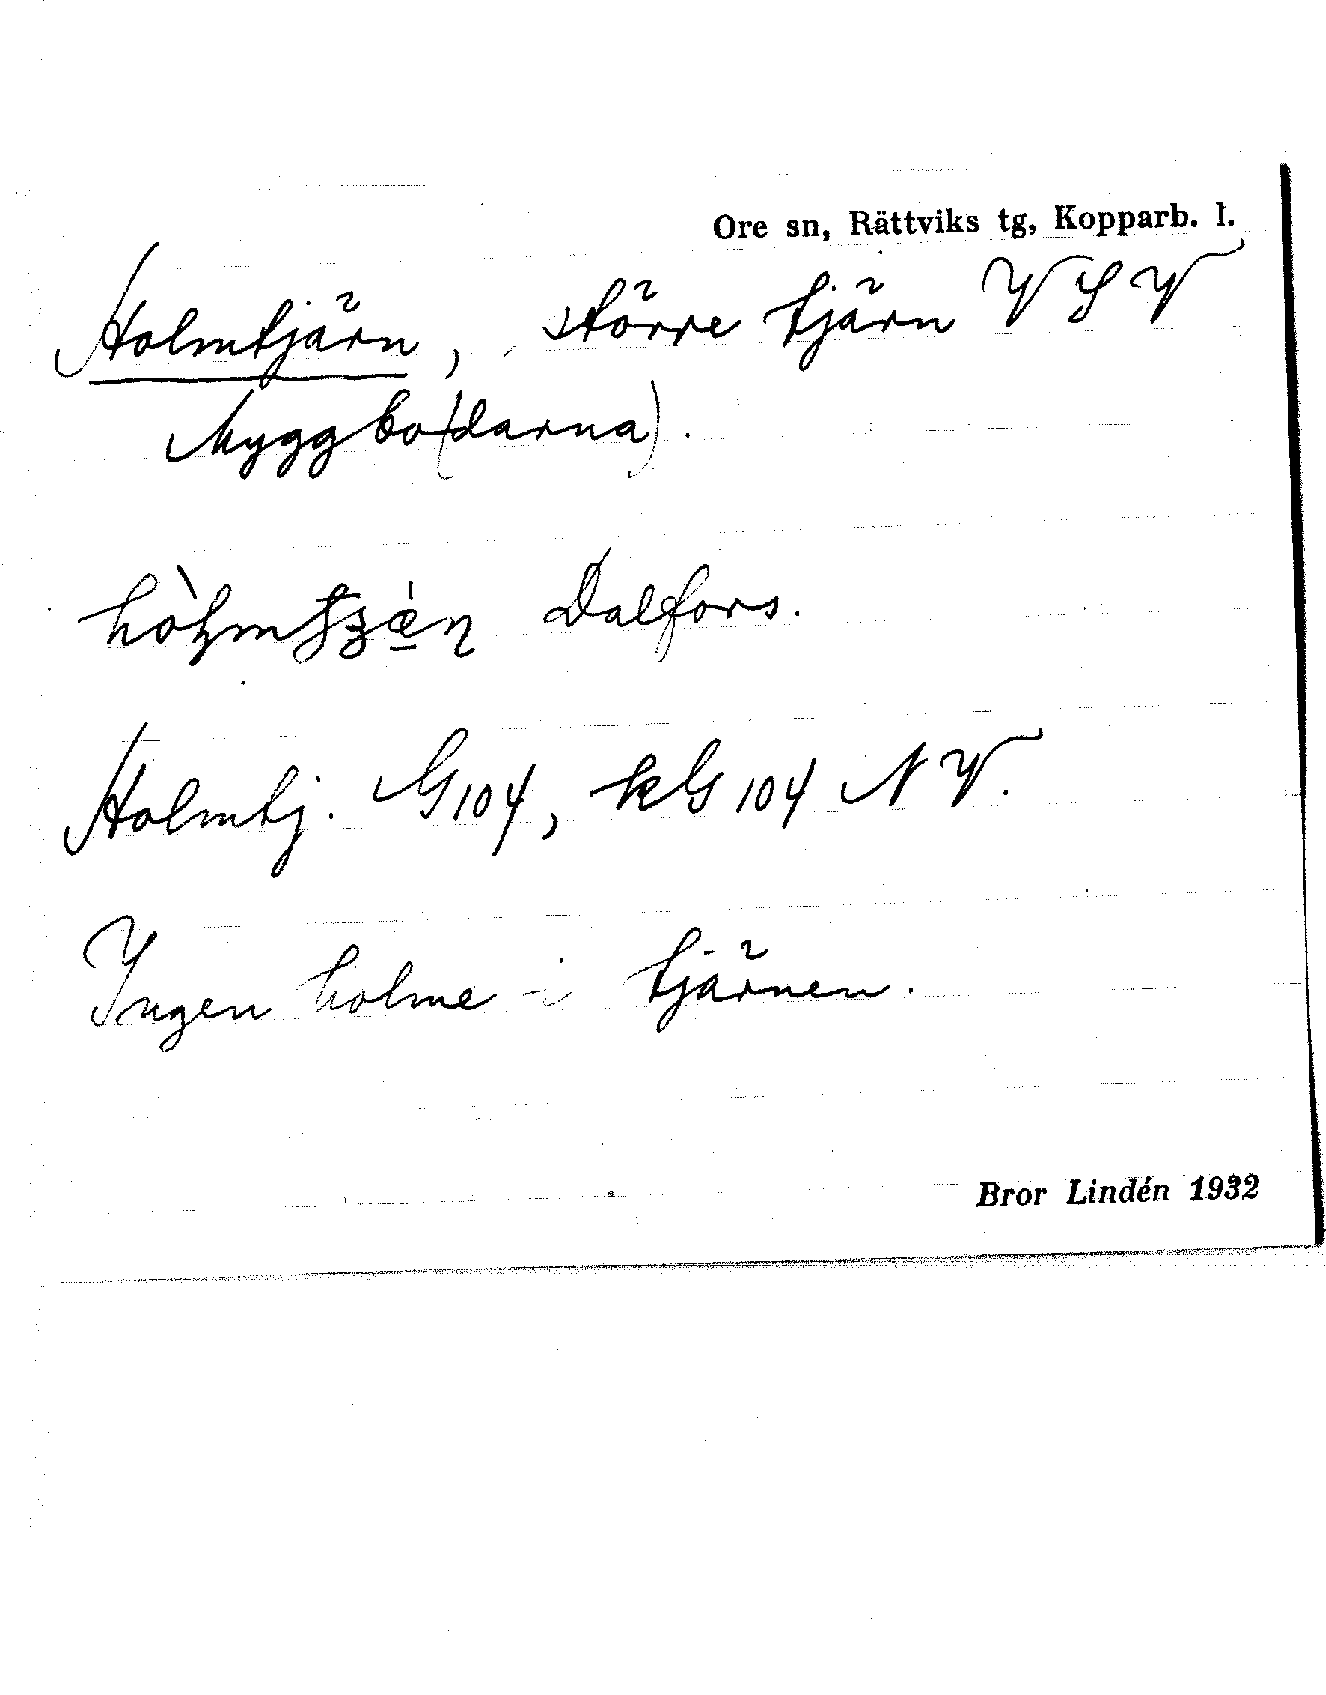 Ore sn, Rättviks tg, Kopparb. l.
Holmtjärn, större tjärn VSV
Myggbo(darna).
Dalfors.
Holmtj. G104, kG104 NV.
Ingen holme i tjärnen.
Bror Lindén 1932